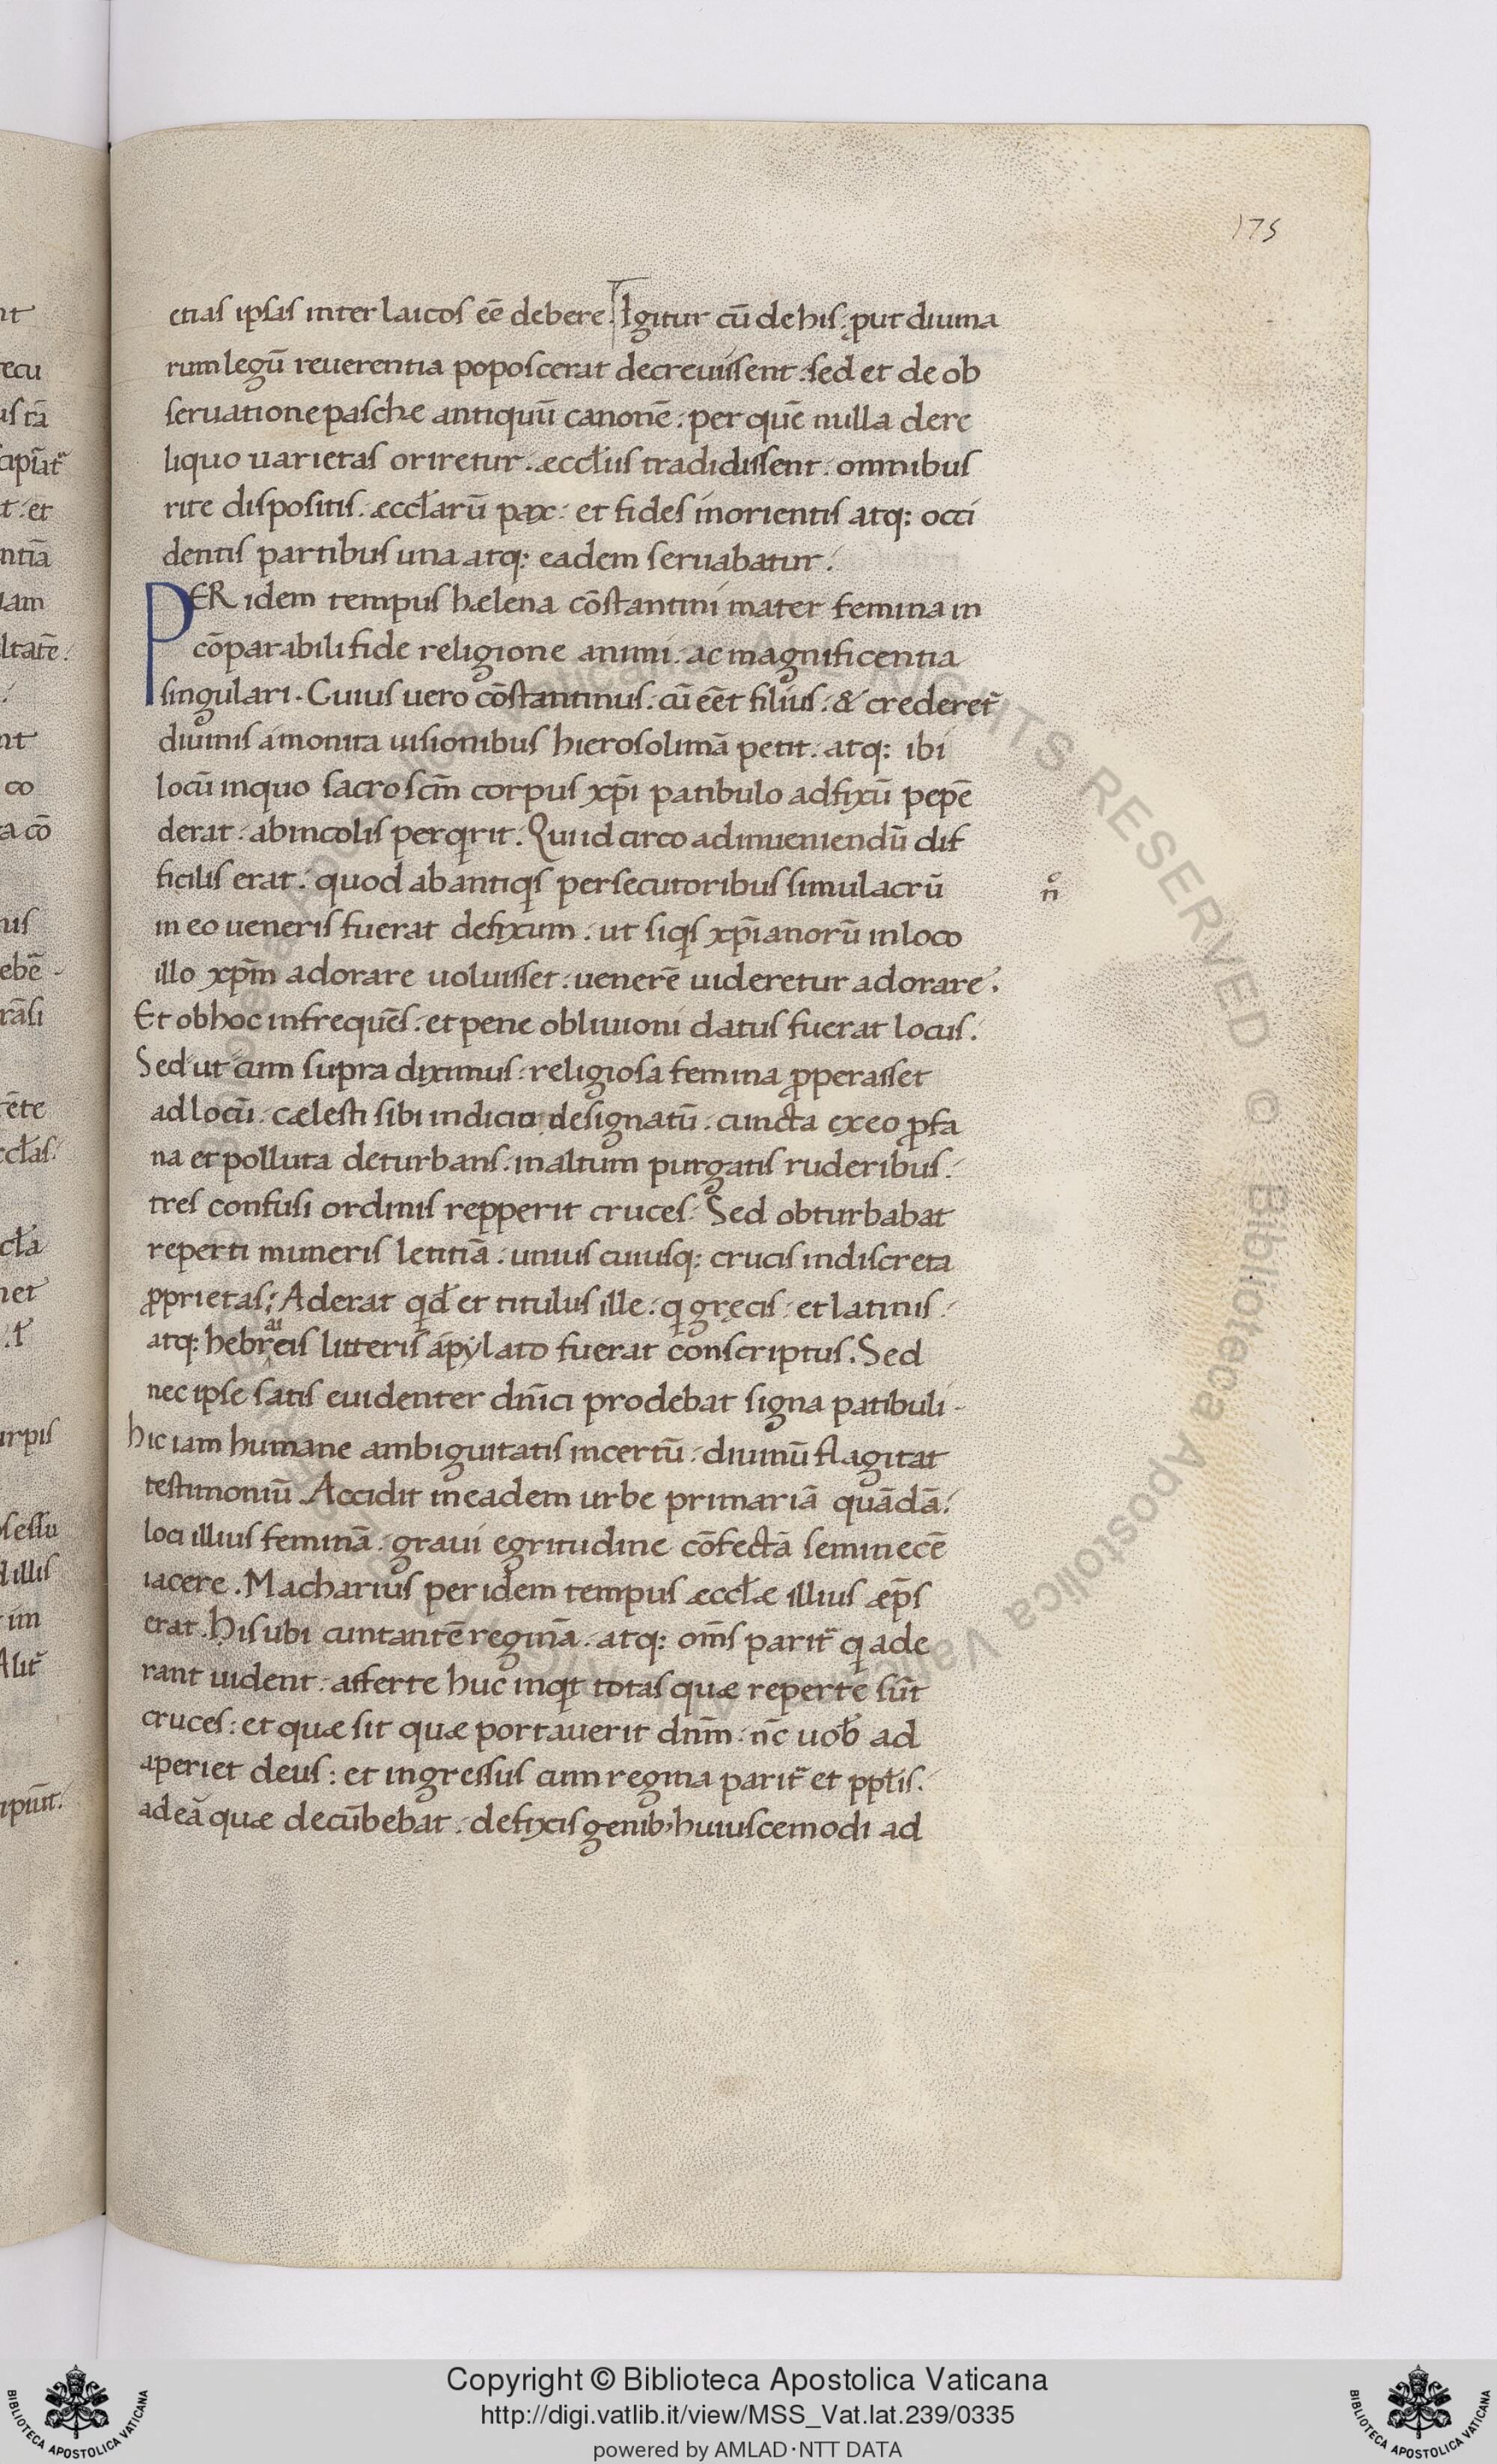 175
etias ipsas inter laicos eē debere. Igitur cū de his. ꝓut diuina
rum legū reuerentia poposcerat decreuissent. sed et de ob
seruatione pasche antiquū canonē. per quē nulla dere
liquo uarietas oriretur. æccłiis tradidissent. omnibus
rite dispositis. æccłarū pax. et fides inorientis atq: occi
dentis partibus una atq: eadem seruabatur.
PER idem tempus hælena cōstantini mater femina in
cōparabili fide religione animi. ac magnificentia
singulari. Cuius uero cōstantinus. cū eēt filius. & crederet᷑
diuinis amonita uisionibus hierosolimā petit. atq: ibi
locū inquo sacroscm̄ corpus xp̄i patibulo adfixū pepē
derat. abincolis perqrit. Qui idcirco adinueniendū dif
ficilis erat. quod ab antiqis persecutoribus simulacrū
n̊
in eo ueneris fuerat defixum. ut siqis xp̄ianorū inloco
illo xp̄m adorare uoluisset. uenerē uideretur adorare.
Et obhoc infrequēs. et pene obliuioni datus fuerat locus.
Sed ut cum supra diximus. religiosa femina ꝓperasset
ad locū. cælesti sibi indicio designatū. cuncta exeo ꝓfa
na et polluta deturbans. inaltum purgatis ruderibus.
tres confusi ordinis repperit cruces. Sed obturbabat
reperti muneris letitiā. unius cuiusq: crucis indiscreta
ꝓprietas; Aderat qd̄ et titulus ille. qi gręcis. et latinis.
ai
atq: hebreis litteris apylato fuerat conscriptus. Sed
nec ipse satis euidenter dn̄ici prodebat signa patibuli.
hic iam humane ambiguitatis incertū. diuinū flagitat
testimoniū. Accidit ineadem urbe primariā quādā.
loci illius feminā. graui egritudine cōfectā seminecē
iacere. Macharius per idem tempus æccłæ illius æp̄s
erat. His ubi cuntantē reginā. atq: om̄s parit᷑ qi ade
rant uident. afferte huc inqit totas quæ reperte sūt
cruces: et quæ sit quæ portauerit dnm̄. nc̄ uob̄ ad
aperiet deus: et ingressus cum regina parit᷑ et ppłis.
ad eā quæ decūbebat. defixis genib; huiuscemodi ad
Copyright © Biblioteca Apostolica Vaticana
http://digi.vatlib.it/view/MSS_Vat.lat.239/0335
powered by AMLAD·NTT DATA
BIBLIOTECA APOSTOLICA VATICANA
BIBLIOTECA APOSTOLICA VATICANA